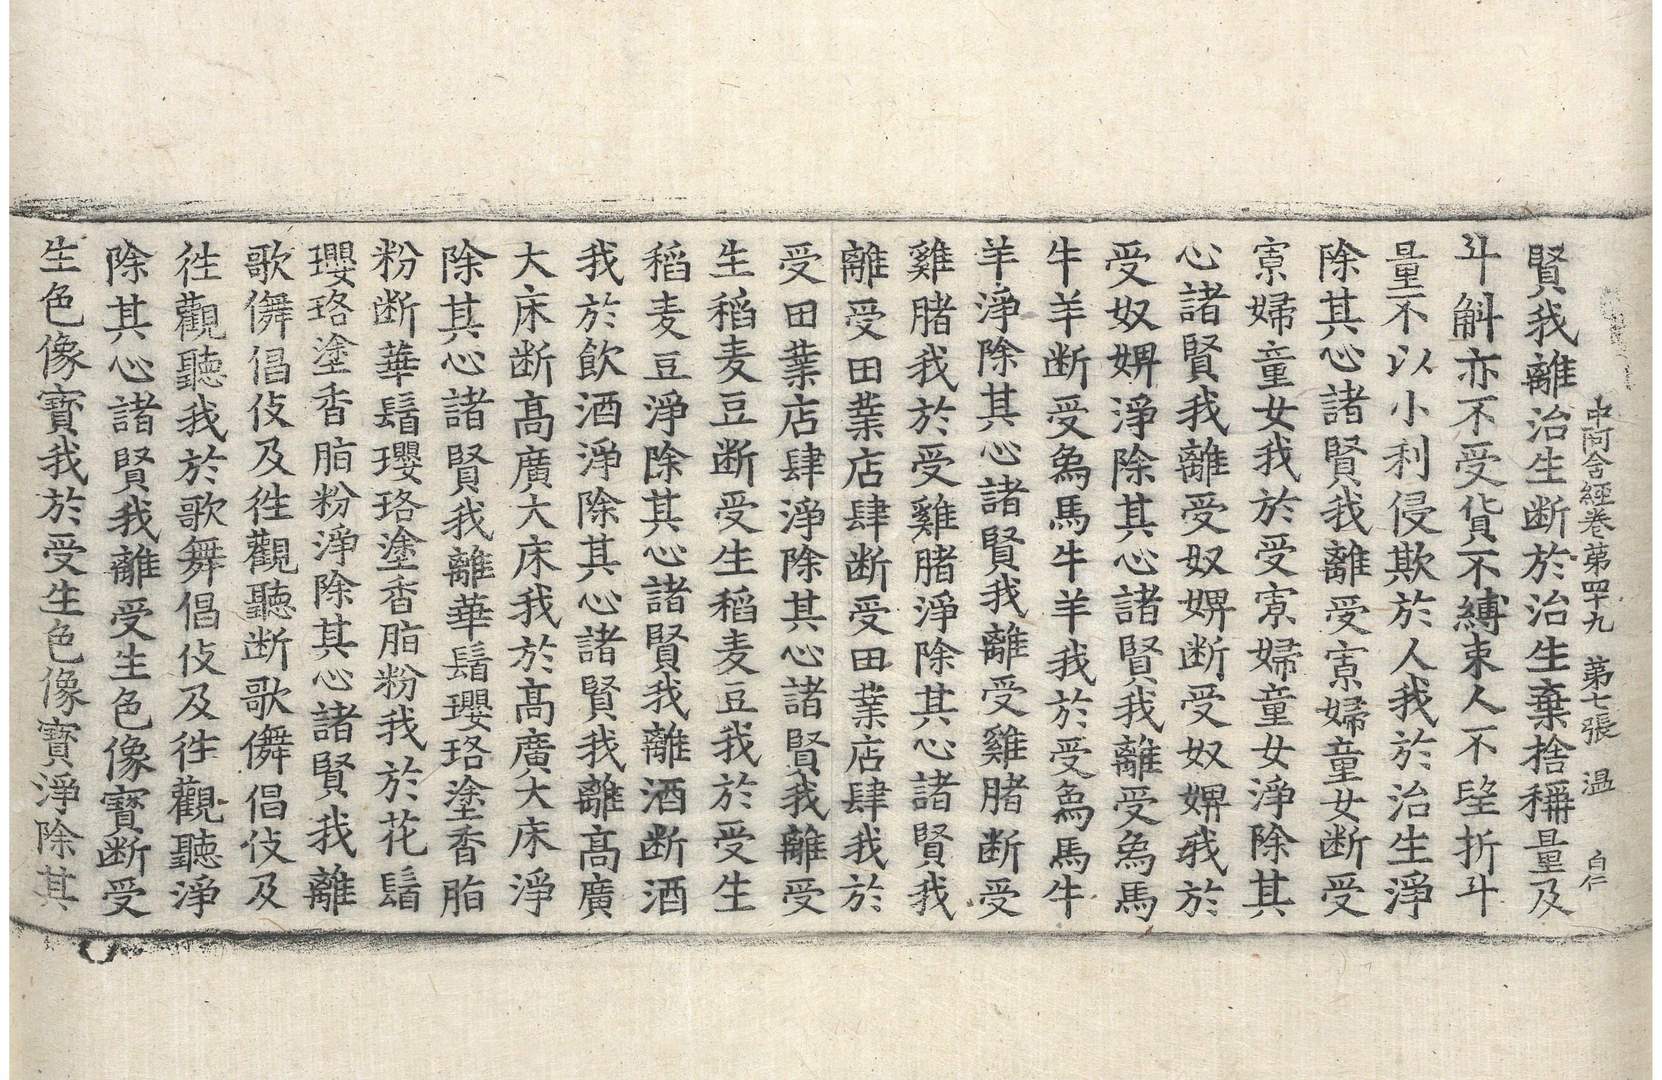 中阿含經卷第四十九　第七張　温　白仁
賢我離治生断於治生棄捨稱量及
斗斛亦不受貨不縛束人不望折斗
量不以小利侵欺於人我於治生淨
除其心諸賢我離受寡婦童女断受
寡婦童女我於受寡婦童女淨除其
心諸賢我離受奴婢断受奴婢我於
受奴婢淨除其心諸賢我離受烏馬
牛羊断受烏馬牛羊我於受烏馬牛
羊淨除其心諸賢我離受雞猪断受
雞猪我於受雞猪淨除其心諸賢我
離受田業店肆断受田業店肆我於
受田業店肆淨除其心諸賢我離受
生稻麦豆断受生稻麦豆我於受生
稻麦豆淨除其心諸賢我離酒断酒
我於飲酒淨除其心諸賢我離高廣
大床断高廣大床我於高廣大床淨
除其心諸賢我離華鬘瓔珞塗香脂
粉断華鬘瓔珞塗香脂粉我於花鬘
瓔珞塗香脂粉淨除其心諸賢我離
歌儛倡伎及徃觀聽断歌儛倡伎及
徃觀聽我於歌舞倡伎及徃觀聽淨
除其心諸賢我離受生色像寶断受
生色像寶我於受生色像寶淨除其